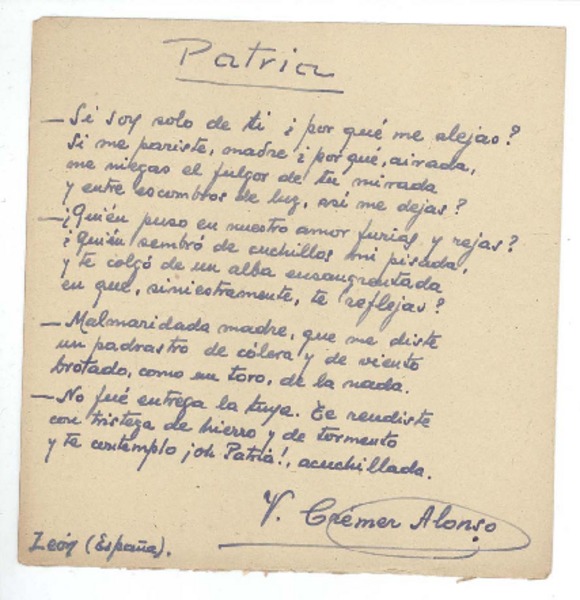 Patria
— Si soy solo de ti ¿por qué me alejas?
Si me pariste, madre ¿por qué, airada,
me niegas el fulgor de tu mirada
y entre escombros de luz, así me dejas?
— ¿Quién puso en nuestro amor furias y rejas?
¿Quién sembró de cuchillos mi pisada,
y te colgó de un alba ensangrentada
en que, siniestramente, te reflejas?
— Malmaridada madre, que me diste
un padrastro de cólera y de viento
brotado, como un toro, de la nada.
— No fué entrega la tuya. Te rendiste
con tristeza de hierro y de tormento
y te contemplo ¡oh Patria!, acuchillada.
V. Crémer Alonso
León (España).